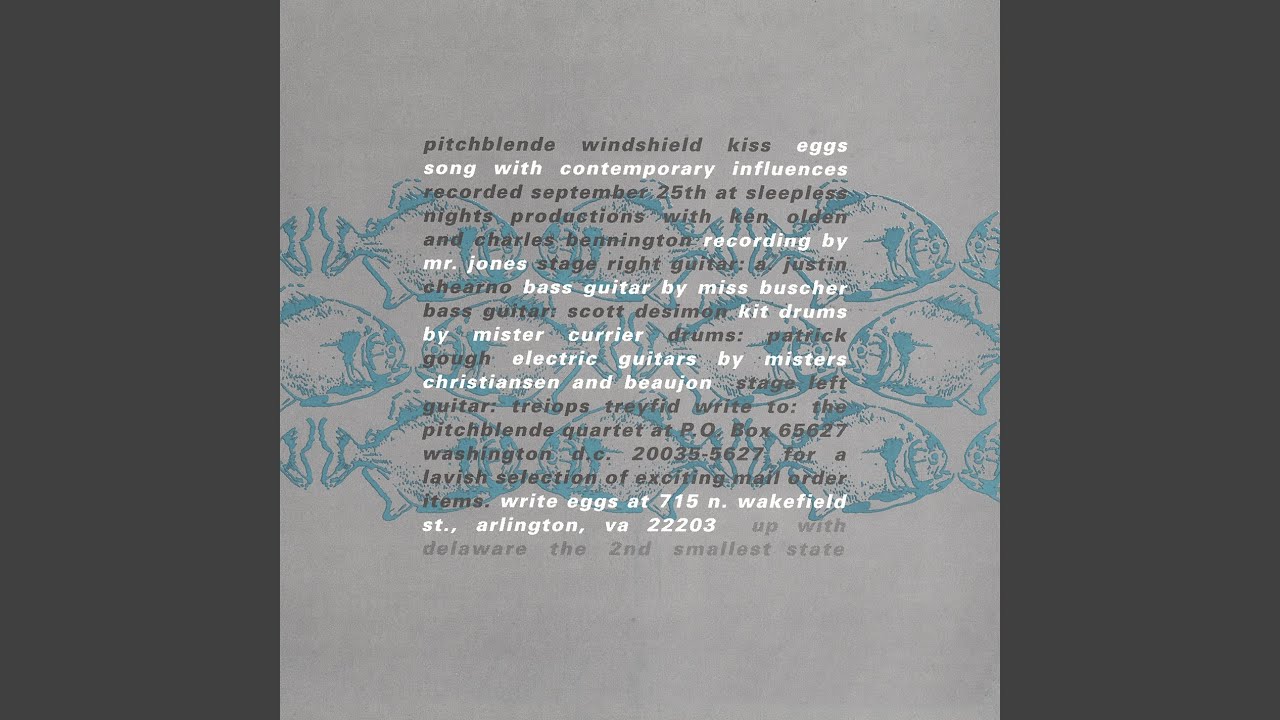 pitchblende windshield kiss eggs
song with contemporary influences
recorded september 25th at sleepless
nights productions with ken olden
and charles bennington recording by
mr. jones stage right guitar: a. justin
chearno bass guitar by miss buscher
bass guitar: scott desimon kit drums
by mister currier drums: patrick
gough electric guitars by misters
christiansen and beaujon stage left
guitar: treiops treyfid write to: the
pitchblende quartet at P.O. Box 65627
washington d.c. 20035-5627 for a
lavish selection of exciting mail order
items. write eggs at 715 n. wakefield
st., arlington, va 22203 up with
delaware the 2nd smallest state